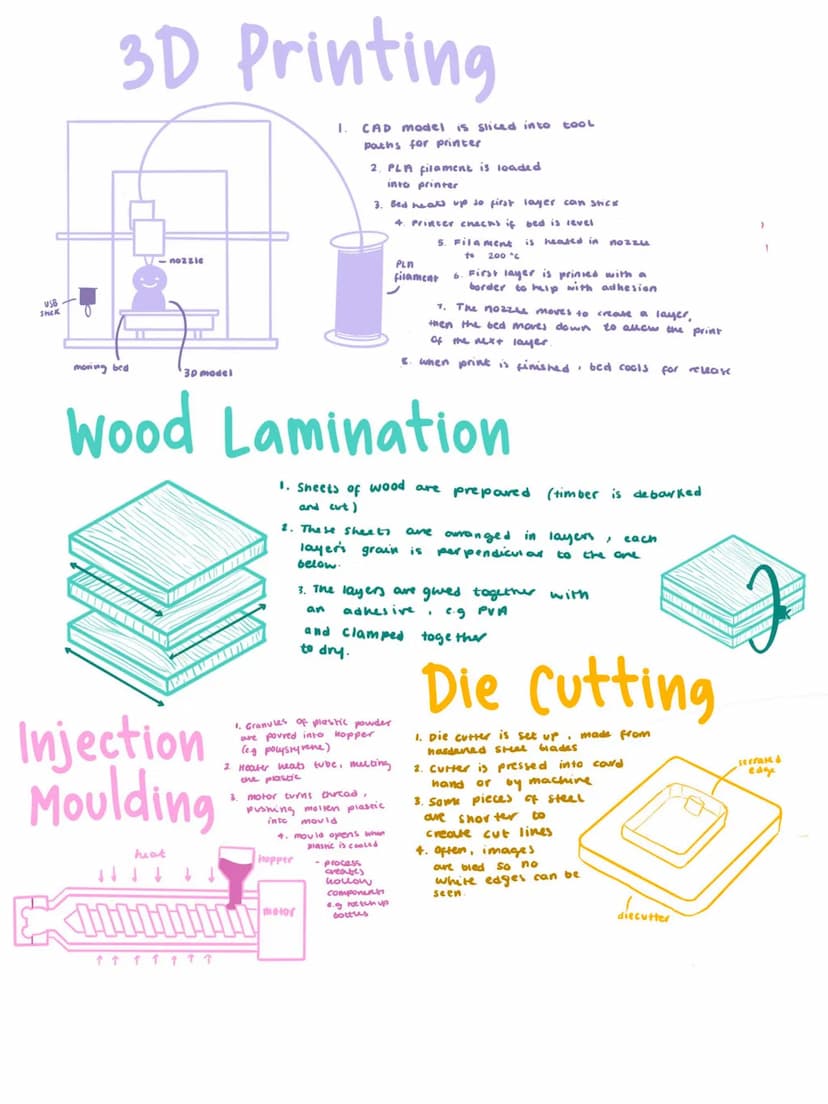 3D Printing
1. CAD model is sliced into tool
paths for printer
2. PLA filament is loaded
into printer
3. Bed heats up so first layer can stick
4. Printer checks if bed is level
5. Filament is heated in nozzle
to 200°C
6. First layer is printed with a
border to help with adhesion
7. The nozzle moves to create a layer,
then the bed moves down to allow the print
of the next layer.
8. when print is finished, bed cools for release
nozzle
PLA
filament
USB
stick
moving bed
3D model
Wood Lamination
1. Sheets of wood are prepared (timber is debarked
and cut)
2. These sheets are arranged in layers, each
layer's grain is perpendicular to the one
below.
3. The layers are glued together with
an adhesive, e.g PVA
and clamped together
to dry.
Injection
Moulding
1. Granules of plastic powder
are poured into hopper
(e.g polystyrene)
2. Heater heats tube, melting
the plastic
3. motor turns thread,
pushing molten plastic
into mould
4. mould opens when
plastic is cooled
- process
creates
hollow
components
e.g ketchup
bottles
heat
hopper
motor
Die Cutting
1. Die cutter is set up, made from
hardened steel blades
2. Cutter is pressed into card
hand or by machine
3. Some pieces of steel
are shorter to
create cut lines
4. Often, images
are bled so no
white edges can be
seen.
serrated
edge
diecutter